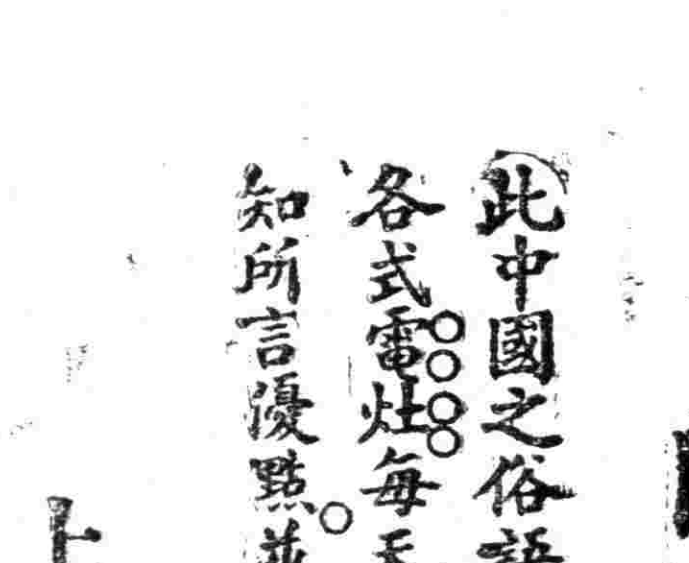 此中國之俗語
各式電灶每天
知所言優點並
上